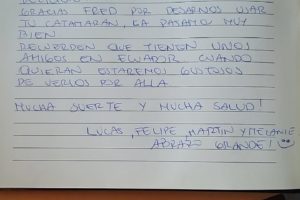 GRACIAS FRED POR DEJARNOS USAR
TU CATAMARAN, LA PASAMO MUY
BIEN
RECUERDEN QUE TIENEN UNOS
AMIGOS EN ECUADOR CUANDO
QUIERAN ESTAREMOS GUSTOSOS
DE VERLOS POR ALLA.
MUCHA SUERTE Y MUCHA SALUD!
LUCAS, FELIPE, MARTIN Y MELANIE
ABRAZO GRANDE!